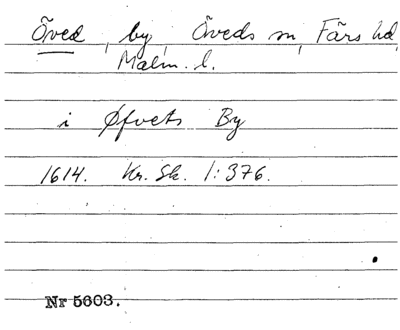 Öved, by, Öveds sn, Färs hd,
Malm. l.
i Øfvets By
1614. Kr. Sk. 1:376.
Nr 5603.